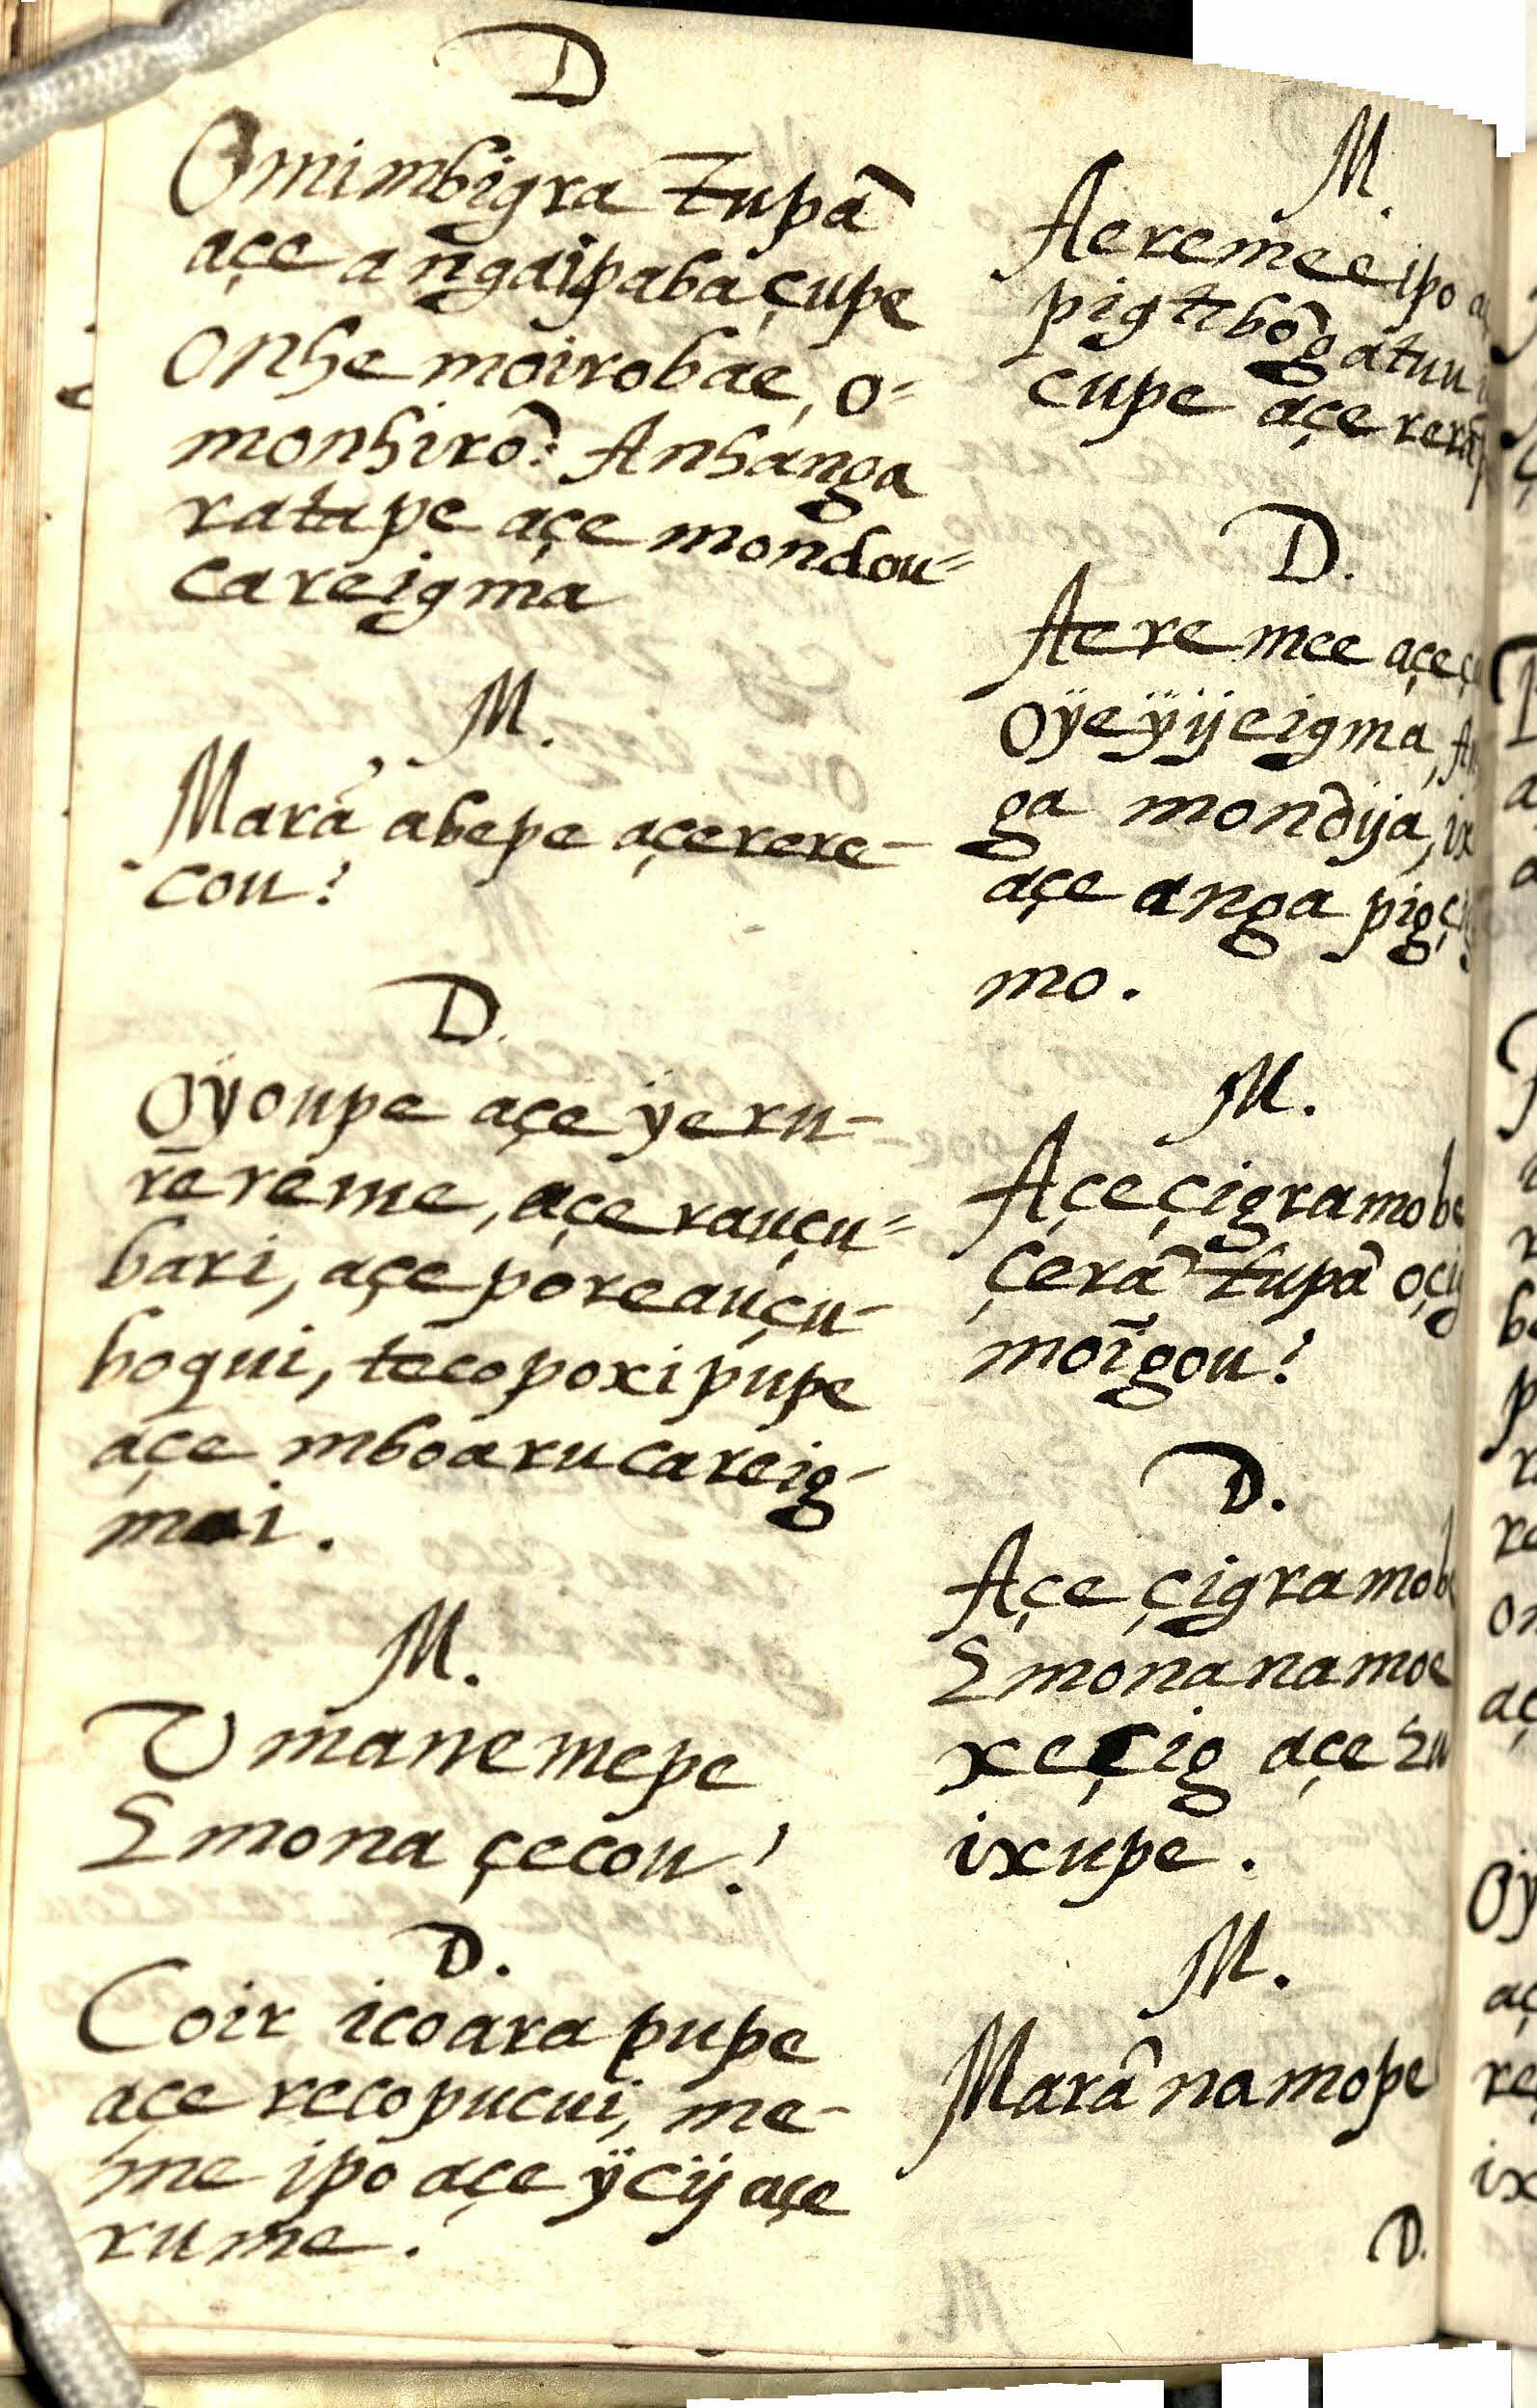 D
Omimbigra Tupã
açe angaipaba çupe
Onhe moirobae, o=
monhirõ: Anhanga
ratape açe mondou=
careigma
M.
Marã abepe açerere-
cou?
D.
Oÿoupe açe ÿeru-
rereme, açe rauçu=
bari, açe poreauçu-
boqui, tecopoxipupe
açe mboarucareig-
mai.
M.
Umanemepe
Emona çecou?
D.
Coir icoara pupe
açe recopucui, me-
hme ipo açe ÿcÿ açe
rume.
M.
Aeremee ipo
pigtibõgatuu
cupe açe rerã
D.
Aeremee açe
Oÿeÿijeigma,
ga mondija,
açe anga pig
mo.
M.
Açe çigramobe
çerã Tupã oçig
moigou?
D.
Açe çigramob
Emonanamoe
xeçig açe
ixupe.
M.
Marã namope
D.